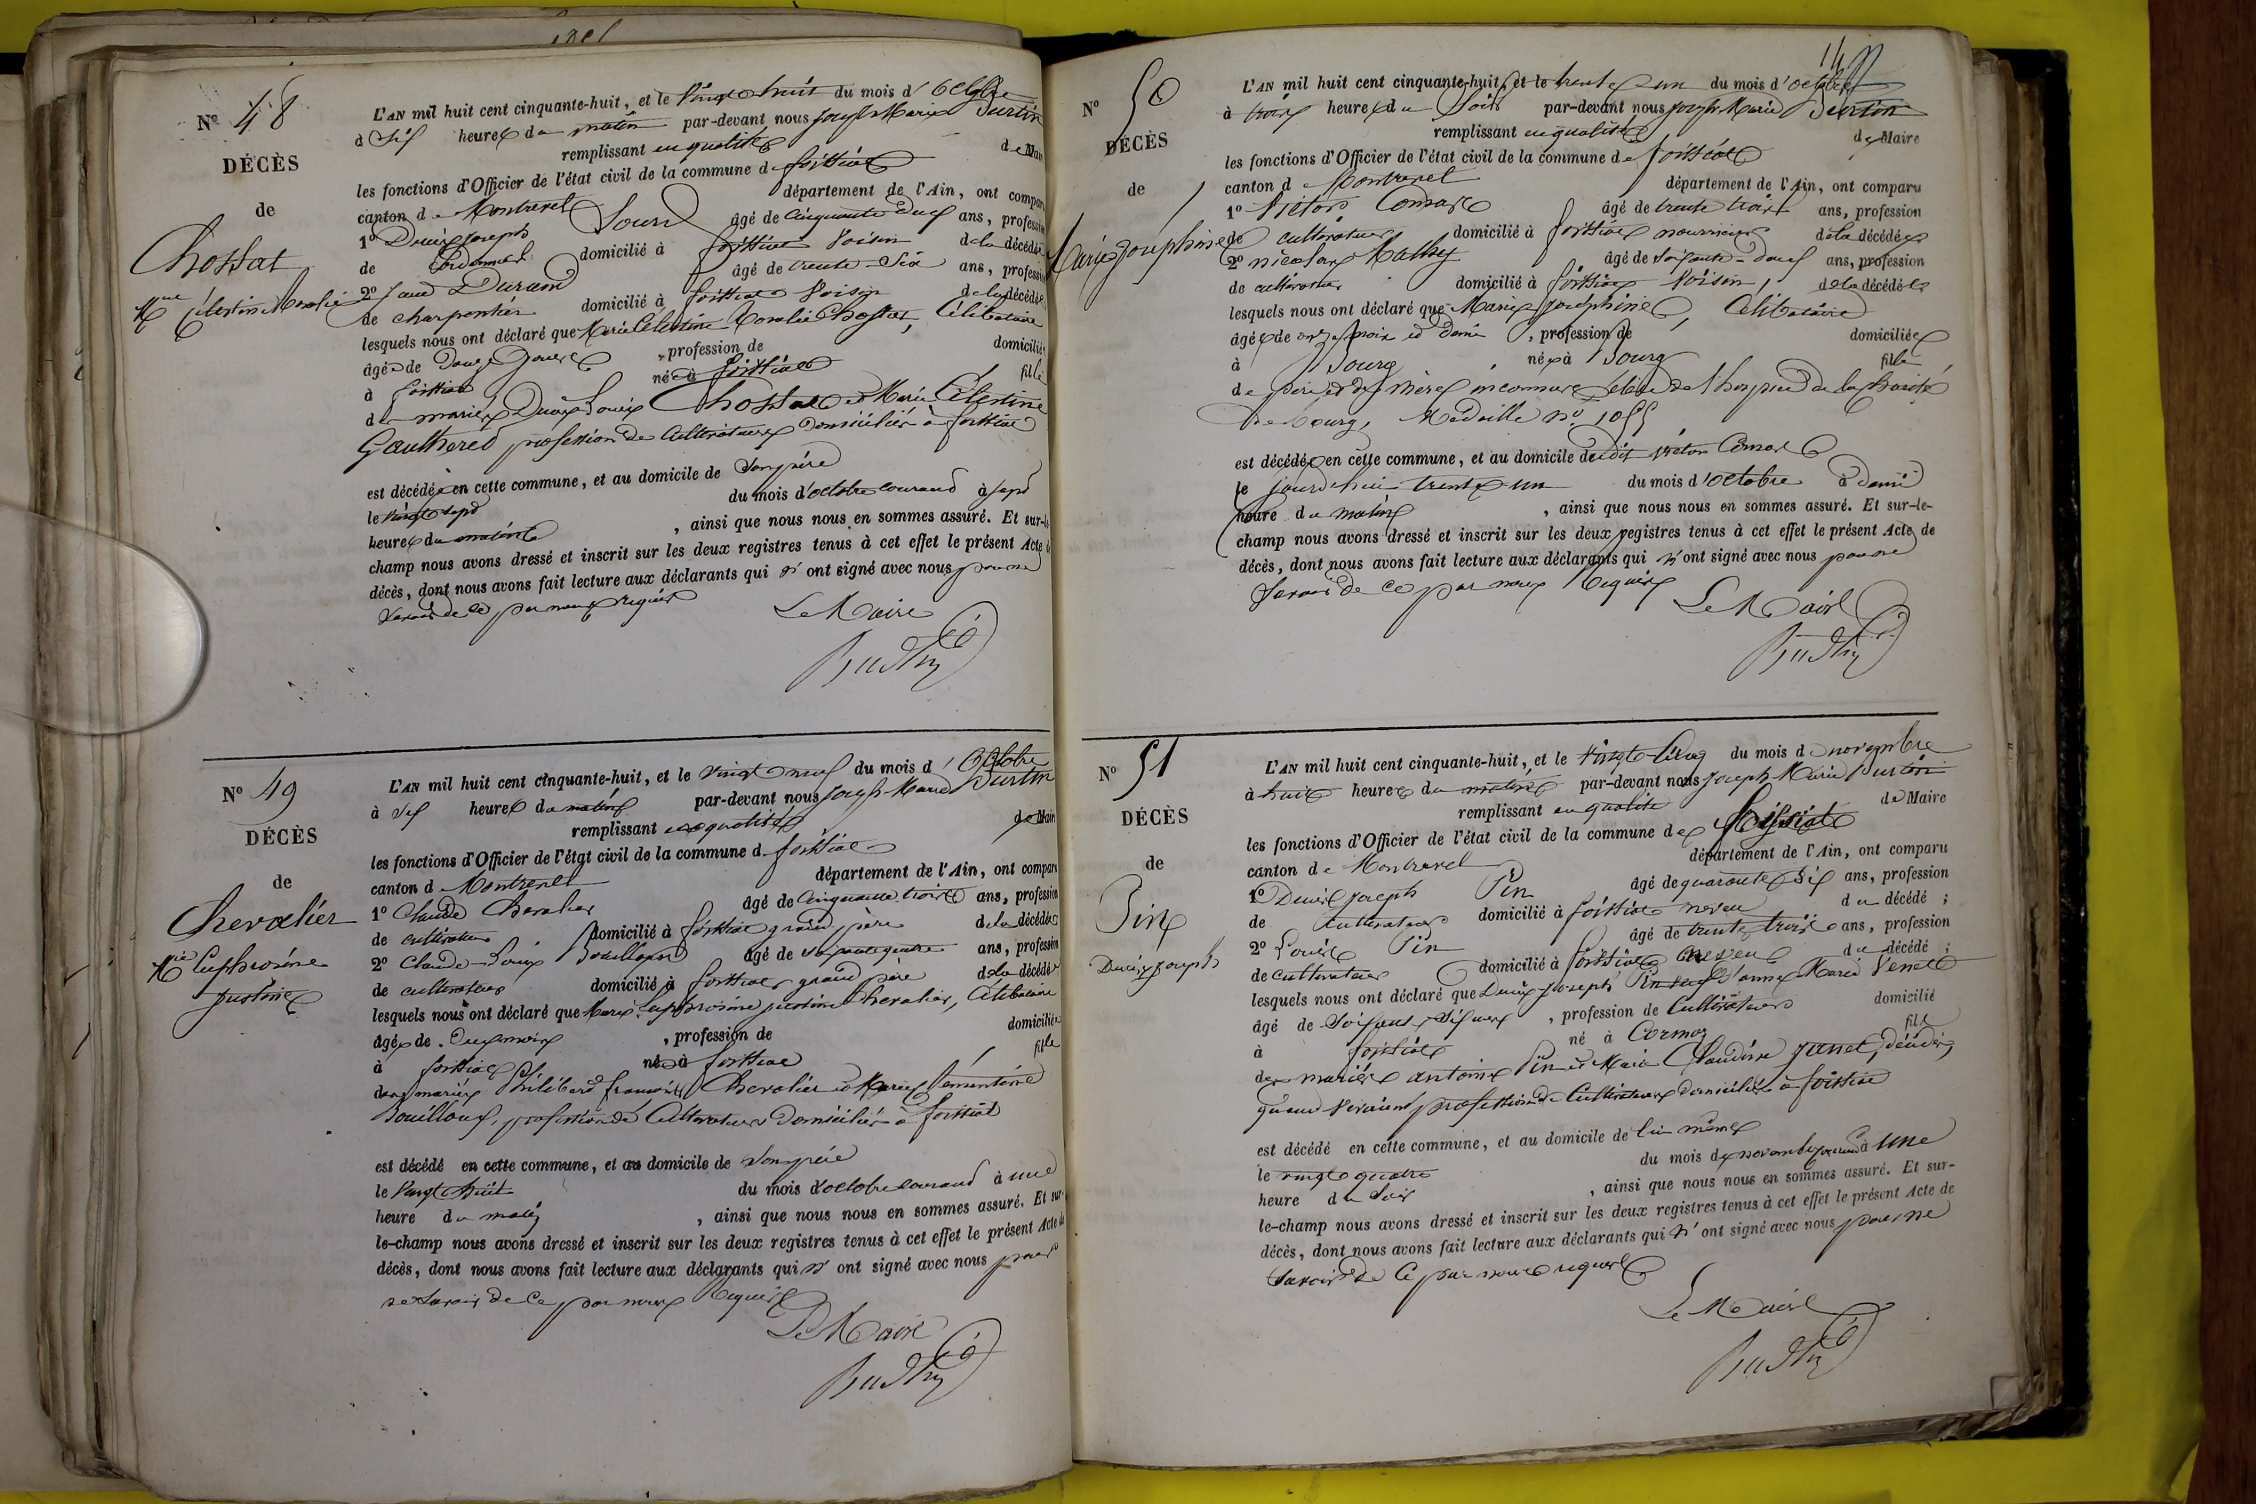 N° 48
DÉCÈS
de
Chossat
Mie Célestine Coralie
L'AN mil huit cent cinquante-huit, et le vingt huit du mois d'octobre
à six heures du matin par-devant nous Joseph Marie Burtin
remplissant en qualité de Maire
les fonctions d'Officier de l'état civil de la commune de foissiat
canton de Montrevel département de l'Ain, ont comparu
1° Denis Joseph Sourd âgé de cinquante deux ans, profession
de cordonnier domicilié à foissiat voisin de la décédée
2° Durand âgé de trente-six ans, profession
de charpentier domicilié à foissiat voisin de la décédée
lesquels nous ont déclaré que Marie Célestine Coralie Chossat, Célibataire
âgée de douze jours, profession de domiciliée
à foissiat née à foissiat fille
des mariés Denis Louis Chossat et Marie Célestine
Gautheret profession de cultivateurs domiciliés à foissiat
est décédée en cette commune, et au domicile de son père
le vingt sept du mois d'octobre courant à sept
heures du matin, ainsi que nous nous en sommes assuré. Et sur-le
champ nous avons dressé et inscrit sur les deux registres tenus à cet effet le présent Acte de
décès, dont nous avons fait lecture aux déclarants qui n'ont signé avec nous pour ne
savoir de ce par nous requis
Le Maire
Burtin
N° 49
DÉCÈS
de
Chevalier
Mie Euphrosine
justine
L'AN mil huit cent cinquante-huit, et le vingt neuf du mois d'octobre
à six heures du matin par-devant nous Joseph Marie Burtin
remplissant en qualité de Maire
les fonctions d'Officier de l'état civil de la commune de foissiat
canton de Montrevel département de l'Ain, ont comparu
1° Claude Chevalier âgé de cinquante trois ans, profession
de cultivateur domicilié à foissiat grand père de la décédée
2° Claude-Louis Bouilloux âgé de soixante quatre ans, profession
de cultivateur domicilié à foissiat grand père de la décédée
lesquels nous ont déclaré que Marie Euphrosine justine Chevalier, Célibataire
âgée de mois, profession de domiciliée
à foissiat née à foissiat fille
des mariés Philibert françois Chevalier et Marie Clémentine
Bouilloux, profession de Cultivateurs domiciliés à foissiat
est décédé en cette commune, et au domicile de son père
le vingt huit du mois d'octobre courant à une
heure du matin, ainsi que nous nous en sommes assuré. Et sur
le-champ nous avons dressé et inscrit sur les deux registres tenus à cet effet le présent Acte de
décès, dont nous avons fait lecture aux déclarants qui n'ont signé avec nous pour
ne savoir de ce par nous requis
Le Maire
Burtin
N° 50
DÉCÈS
de
Marie Joséphine
L'AN mil huit cent cinquante-huit, et le trente un du mois d'octobre
à trois heures du soir par-devant nous Joseph Marie Burtin
remplissant en qualité de Maire
les fonctions d'Officier de l'état civil de la commune de foissiat
canton de Montrevel département de l'Ain, ont comparu
1° Victor Comas âgé de trente trois ans, profession
de cultivateur domicilié à foissiat nourricier de la décédée
2° nicolas Mathy âgé de soixante-douze ans, profession
de cultivateur domicilié à foissiat voisin, de la décédée
lesquels nous ont déclaré que Marie Joséphine, Célibataire
âgée de onze mois et demi, profession de domiciliée
à Bourg née à Bourg fille
de père et de mère inconnus, élève de l'hospice de la charité
de bourg, Médaille n° 1055
est décédée en cette commune, et au domicile dudit victor Comas
le jourd'hui trente un du mois d'octobre à demi
heure du matin, ainsi que nous nous en sommes assuré. Et sur-le-
champ nous avons dressé et inscrit sur les deux registres tenus à cet effet le présent Acte de
décès, dont nous avons fait lecture aux déclarants qui n'ont signé avec nous pour ne
savoir de ce par nous requis
Le Maire
Burtin
N° 51
DÉCÈS
de
Pin
Denis Joseph
L'AN mil huit cent cinquante-huit, et le vingt cinq du mois de novembre
à huit heures du matin par-devant nous Joseph Marie Burtin
remplissant en qualité de Maire
les fonctions d'Officier de l'état civil de la commune de foissiat
canton de Montrevel département de l'Ain, ont comparu
1° Denis Joseph Pin âgé de quarante six ans, profession
de Cultivateur domicilié à foissiat neveu du décédé;
2° Louis Pin âgé de trente trois ans, profession
de Cultivateur domicilié à foissiat neveu du décédé;
lesquels nous ont déclaré que Denis Joseph Pin veuf d'anne Marie Venet
âgé de soixante dix neuf, profession de Cultivateur domicilié
à foissiat né à Cormoz fils
des mariés antoine Pin et Marie Claudine Janet, décédés
quand vivaient profession de Cultivateurs domiciliés à foissiat
est décédé en cette commune, et au domicile de lui même
le vingt quatre du mois de novembre courant à une
heure du soir, ainsi que nous nous en sommes assuré. Et sur-
le-champ nous avons dressé et inscrit sur les deux registres tenus à cet effet le présent Acte de
décès, dont nous avons fait lecture aux déclarants qui n'ont signé avec nous pour ne
savoir de ce par nous requis
Le Maire
Burtin